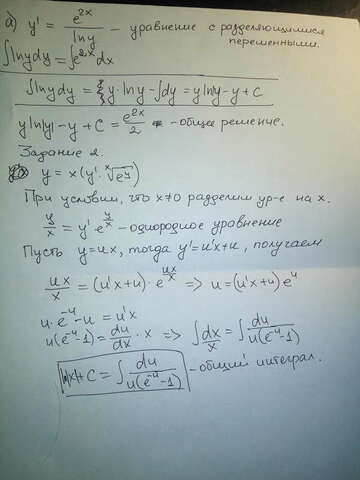 а) y' = e^{2x}/ln y - уравнение с разделяющимися
переменными.
∫ln y dy = ∫e^{2x} dx
∫ln y dy = y·ln y - ∫dy = y ln y - y + C
y ln|y| - y + C = e^{2x}/2 - общее решение.
Задание 2.
y = x(y'·\sqrt[x]{e^y})
При условии, что x≠0 разделим ур-е на x.
y/x = y' e^{y/x} - однородное уравнение
Пусть y=ux, тогда y'=u'x+u, получаем
ux/x = (u'x+u)·e^{ux/x} => u=(u'x+u)e^u
u·e^{-u} - u = u'x
u(e^{-u}-1) = du/dx · x => ∫dx/x = ∫du/u(e^{-u}-1)
ln|x|+C = ∫du/u(e^{-u}-1) - общий интеграл.